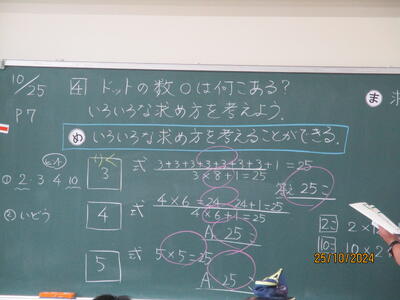 10/25
P7
4 ドットの数○は何こある?
いろいろな求め方を考えよう。
め いろいろな求め方を考えることができる。
ま 求
① 2・3・4 10
② いどう
3 式 3+3+3+3+3+3+3+3+1=25
3×8+1=25
答え 25こ
4 式 4×6=24 24+1=25
4×6+1=25
A 25
5 式 5×5=25
A 25こ
2こ 2×1
10こ 10×2
25/10/2024